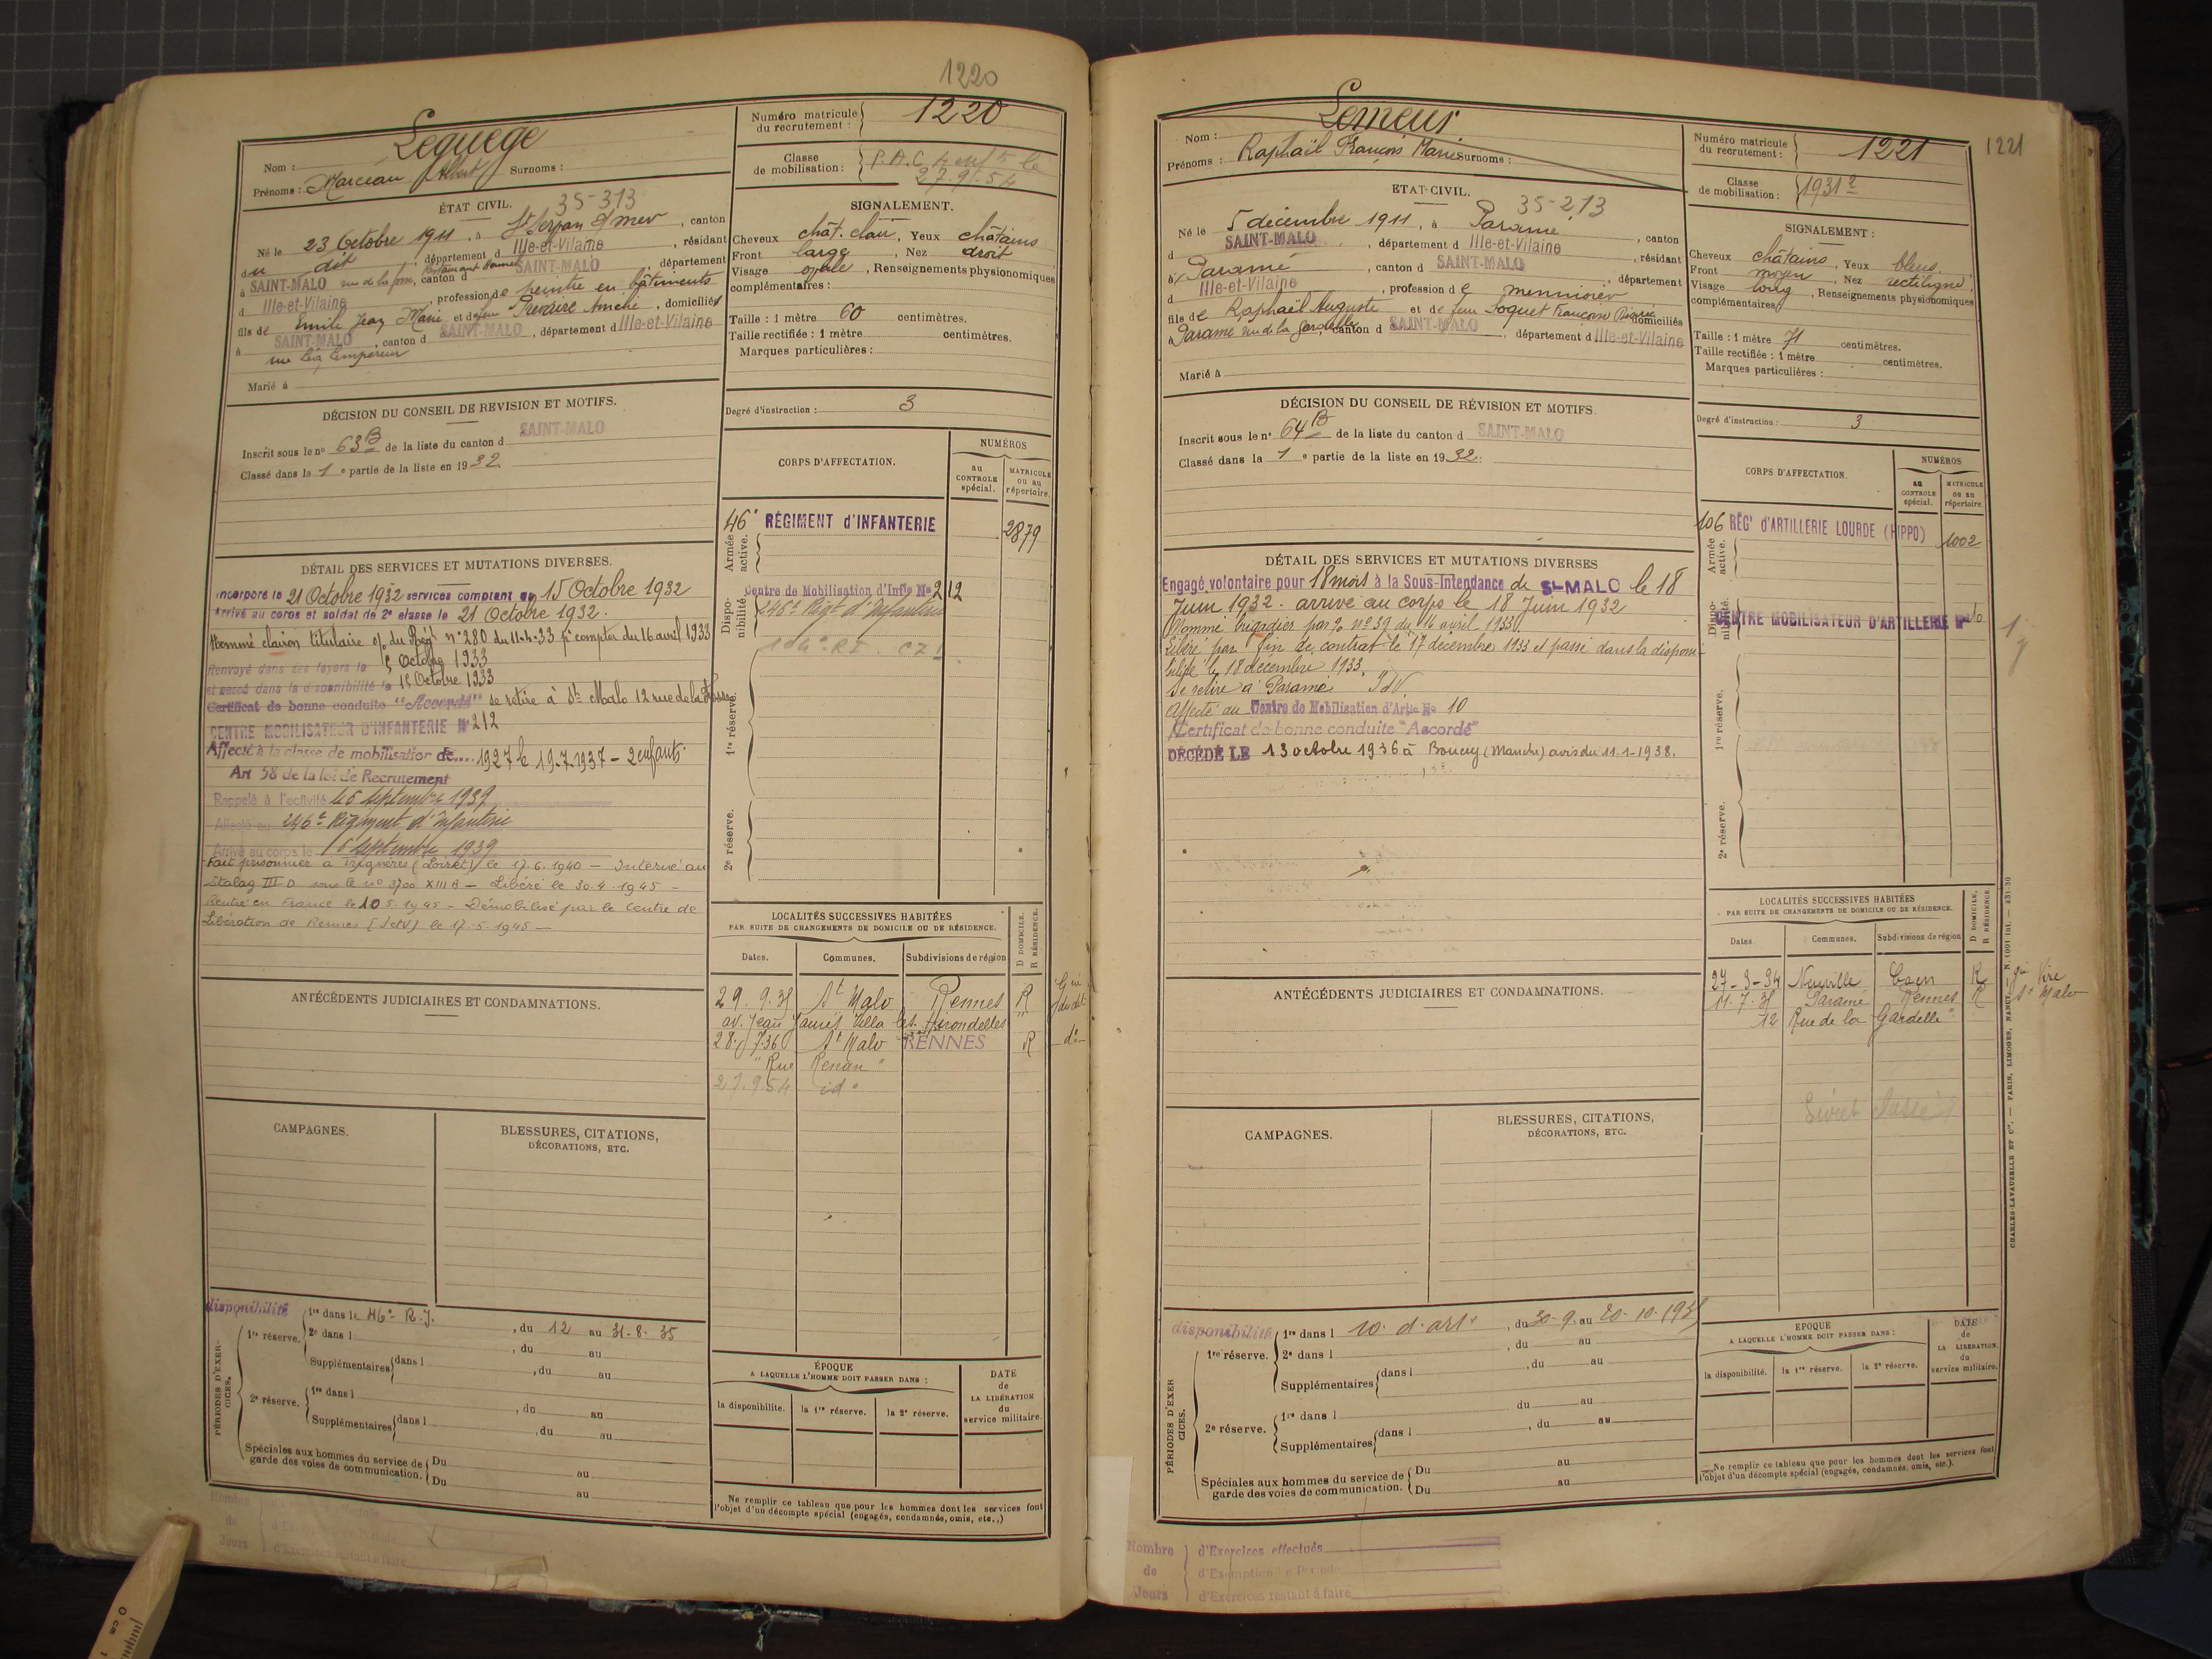 1220
Nom : Leguege
Prénoms : Marceau Albert Surnoms :
Numéro matricule du recrutement : 1220
Classe de mobilisation : P.A.C. 4 enf 5 le
27.9.54
ÉTAT CIVIL. 35-313
Né le 23 Octobre 1911, à St Servan s/mer, canton
du dit, département d Ille-et-Vilaine, résidant
à SAINT-MALO, canton d SAINT-MALO, département
d Ille-et-Vilaine, profession de peintre en bâtiments
fils de Emile Jean Marie et de feue Amélie, domiciliés
à SAINT-MALO, canton d SAINT-MALO, département d Ille-et-Vilaine
Marié à
SIGNALEMENT.
Cheveux chât. clair, Yeux châtains
Front large, Nez droit
Visage ovale, Renseignements physionomiques
complémentaires :
Taille : 1 mètre 60 centimètres.
Taille rectifiée : 1 mètre centimètres.
Marques particulières :
Degré d'instruction : 3
DÉCISION DU CONSEIL DE REVISION ET MOTIFS.
Inscrit sous le no 63 B de la liste du canton d SAINT-MALO
Classé dans la 1e partie de la liste en 1932.
CORPS D'AFFECTATION.
NUMÉROS
au CONTROLE spécial.
MATRICULE ou au répertoire.
Armée active.
46e RÉGIMENT d'INFANTERIE 2879
Disponibilité.
Centre de Mobilisation d'Infie No 212
246e Régt d'Infanterie
1re réserve.
2e réserve.
DÉTAIL DES SERVICES ET MUTATIONS DIVERSES.
Incorporé le 21 Octobre 1932 services comptant du 15 Octobre 1932
Arrivé au corps et soldat de 2e classe le 21 Octobre 1932.
Nommé clairon titulaire o/ du Régt n° 280 du 11-4-33 pr compter du 16 avril 1933
Renvoyé dans ses foyers le Octobre 1933
et passé dans la disponibilité le 15 Octobre 1933
Certificat de bonne conduite "Accordé" se retire à St Malo 12 rue de la Fosse
CENTRE MOBILISATEUR D'INFANTERIE N° 212
Affecté à la classe de mobilisation de.... 1927 le 19.7.1937 - 2 enfants
Art 58 de la loi de Recrutement
Rappelé à l'activité le 5 septembre 1939
Affecté au 246e Régiment d'Infanterie
Arrivé au corps le septembre 1939
Fait prisonnier à Trignères (Loiret) le 17.6.1940 - Interné au
Stalag III D sous le no 3700 XIII B - Libéré le 30.4.1945 -
Rentré en France le 10.5.1945 - Démobilisé par le centre de
Libération de Rennes (IetV) le 17.5.1945 -
ANTÉCÉDENTS JUDICIAIRES ET CONDAMNATIONS.
LOCALITÉS SUCCESSIVES HABITÉES
PAR SUITE DE CHANGEMENTS DE DOMICILE OU DE RÉSIDENCE.
D DOMICILE. R RÉSIDENCE.
Dates. Communes. Subdivisions de région
29.9.35 St Malo Rennes R
av. Jean Jaurès Villa les Hirondelles
28.7.36 St Malo RENNES R do
Rue Renan
27.9.54 id
CAMPAGNES.
BLESSURES, CITATIONS,
DÉCORATIONS, ETC.
PÉRIODES D'EXERCICES.
disponibilité
1re réserve. 1re dans le 46e R.I., du 12 au 31-8-35
2e dans l , du au
Supplémentaires dans l , du au
2e réserve. 1re dans l , du au
Supplémentaires dans l , du au
Spéciales aux hommes du service de garde des voies de communication. Du au
Du au
ÉPOQUE
A LAQUELLE L'HOMME DOIT PASSER DANS :
la disponibilité. la 1re réserve. la 2e réserve.
DATE de LA LIBÉRATION du service militaire.
Ne remplir ce tableau que pour les hommes dont les services font
l'objet d'un décompte spécial (engagés, condamnés, omis, etc.,)
Nombre de Jours
0 cm 1
1221
Nom : Lemeur
Prénoms : Raphaël François Marie Surnoms :
Numéro matricule du recrutement : 1221
Classe de mobilisation : 1931
ETAT CIVIL. 35-213
Né le 5 décembre 1911, à Paramé, canton
d SAINT-MALO, département d Ille-et-Vilaine, résidant
à Paramé, canton d SAINT-MALO, département
d Ille-et-Vilaine, profession de menuisier
fils de Raphaël Auguste et de feue Soquet Françoise domiciliés
à Paramé rue de la Gardelle, canton d SAINT-MALO, département d Ille-et-Vilaine
Marié à
SIGNALEMENT :
Cheveux châtains, Yeux bleus.
Front moyen, Nez rectiligne
Visage long, Renseignements physionomiques
complémentaires
Taille : 1 mètre 71 centimètres.
Taille rectifiée : 1 mètre centimètres.
Marques particulières :
Degré d'instruction : 3
DÉCISION DU CONSEIL DE RÉVISION ET MOTIFS
Inscrit sous le n° 64 B de la liste du canton d SAINT-MALO
Classé dans la 1e partie de la liste en 1932.
CORPS D'AFFECTATION.
NUMÉROS
au CONTROLE spécial.
MATRICULE ou au répertoire.
Armée active.
106 RÉGt d'ARTILLERIE LOURDE (HIPPO) 1002
Disponibilité.
CENTRE MOBILISATEUR D'ARTILLERIE N° 10
1re réserve.
2e réserve.
DÉTAIL DES SERVICES ET MUTATIONS DIVERSES
Engagé volontaire pour 18 mois à la Sous-Intendance de St-MALO le 18
Juin 1932. arrivé au corps le 18 Juin 1932
Nommé brigadier par o/o no 39 du 16 avril 1933.
Libéré par fin de contrat le 17 décembre 1933 et passé dans la disponi-
bilité le 18 décembre 1933.
Se retire à Paramé IdV.
Affecté au Centre de Mobilisation d'Artie No 10
Certificat de bonne conduite "Accordé"
DÉCÉDÉ LE 13 octobre 1936 à Boucey (Manche) avis du 11-1-1938.
ANTÉCÉDENTS JUDICIAIRES ET CONDAMNATIONS.
LOCALITÉS SUCCESSIVES HABITÉES
PAR SUITE DE CHANGEMENTS DE DOMICILE OU DE RÉSIDENCE.
D DOMICILE. R RÉSIDENCE
Dates. Communes. Subdivisions de région
27-3-34 Neuville Caen R Vire
11.7.35 Paramé Rennes R St Malo
12 Rue de la Gardelle
Livret classé
CAMPAGNES.
BLESSURES, CITATIONS,
DÉCORATIONS, ETC.
PÉRIODES D'EXERCICES.
disponibilité
1re réserve. 1re dans l 10. d'artie, du 30-9 au 20-10-1935
2e dans l , du au
Supplémentaires dans l , du au
2e réserve. 1re dans l du au
Supplémentaires dans l , du au
Spéciales aux hommes du service de garde des voies de communication. Du au
Du au
EPOQUE
A LAQUELLE L'HOMME DOIT PASSER DANS :
la disponibilité. la 1re réserve. la 2e réserve.
DATE de LA LIBÉRATION du service militaire.
Ne remplir ce tableau que pour les hommes dont les services font
l'objet d'un décompte spécial (engagés, condamnés, omis, etc.).
CHARLES-LAVAUZELLE ET Cie. — PARIS, LIMOGES, NANCY.
Nombre de Jours
d'Exercices effectués
d'Exemption de Période
d'Exercices restant à faire